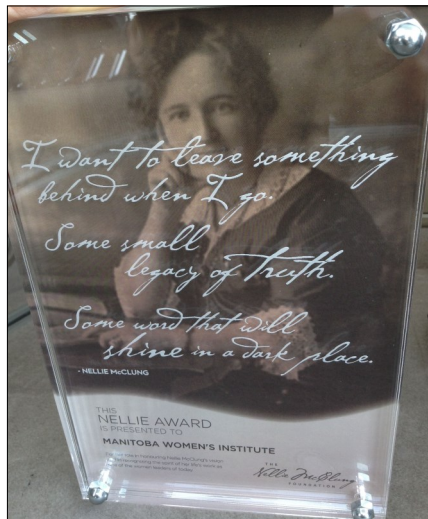 I want to leave something
behind when I go.
Some small
legacy of truth.
Some word that will
shine in a dark place.
- NELLIE McCLUNG
THIS
NELLIE AWARD
IS PRESENTED TO
MANITOBA WOMEN'S INSTITUTE
THE
Nellie McClung
FOUNDATION